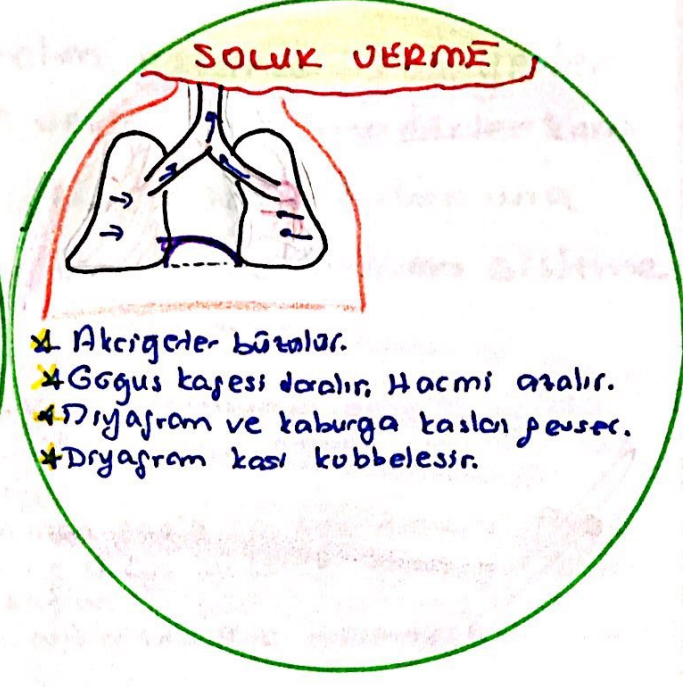 SOLUK VERME
Akciğerler büzülür.
Göğüs kafesi daralır, Hacmi azalır.
Diyafram ve kaburga kasları gevşer.
Diyafram kası kubbeleşir.